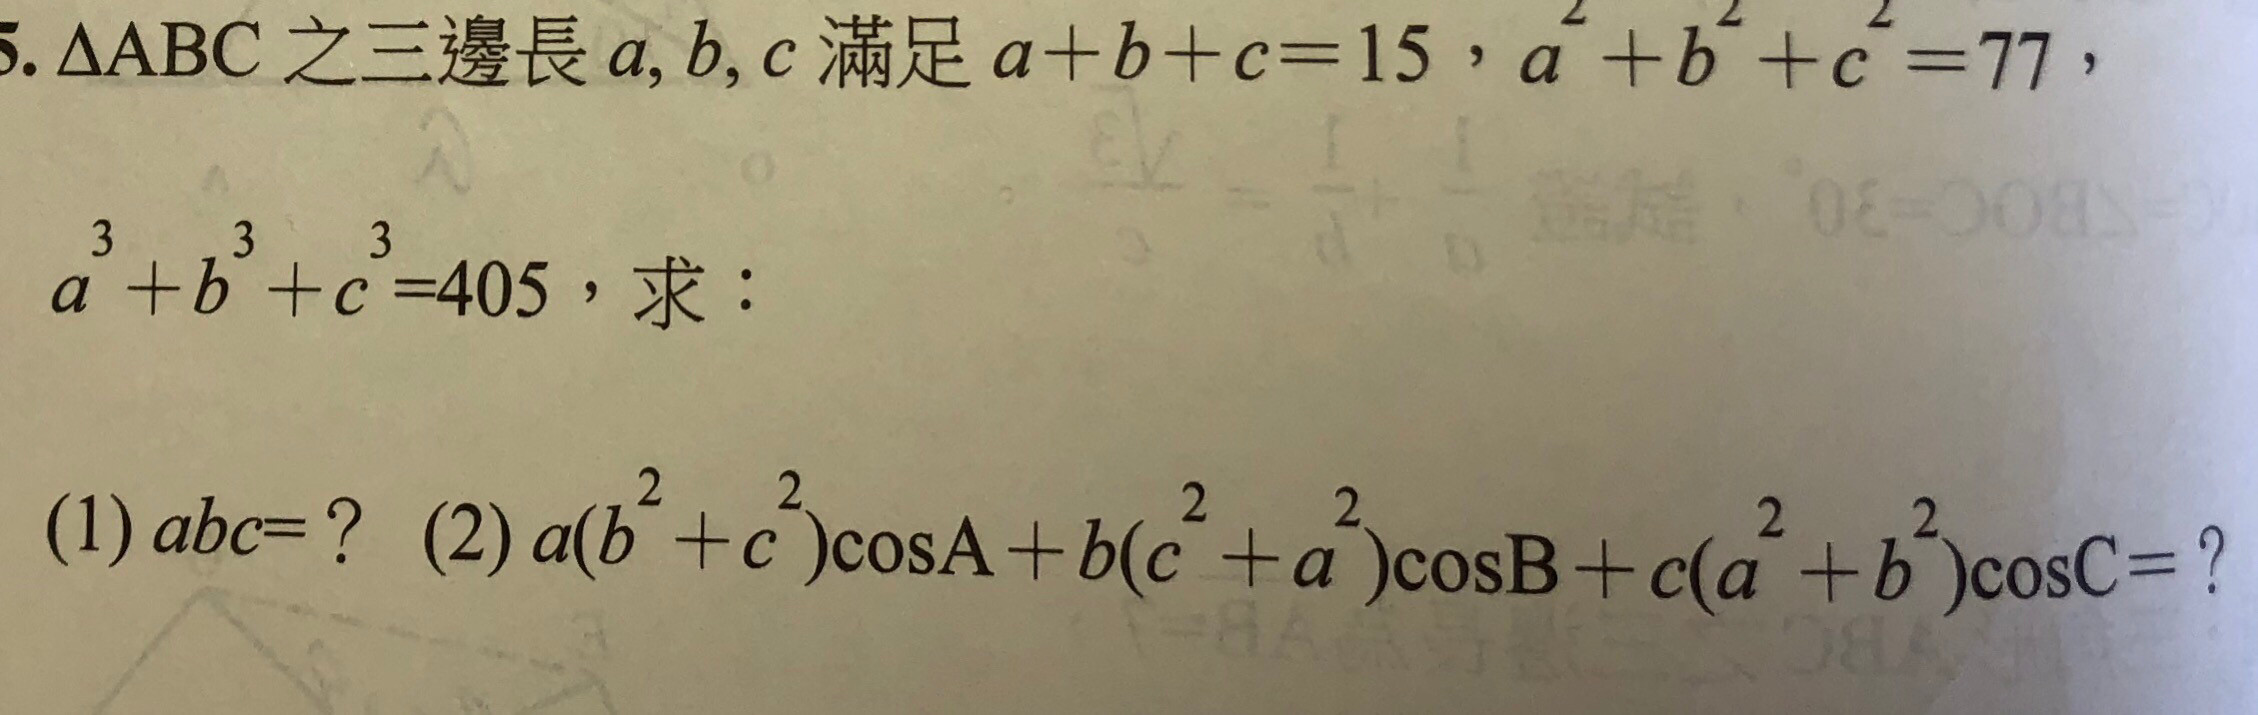 5. ΔABC 之三邊長 a, b, c 滿足 a+b+c=15，a²+b²+c²=77，
a³+b³+c³=405，求：
(1) abc=？ (2) a(b²+c²)cosA+b(c²+a²)cosB+c(a²+b²)cosC=？